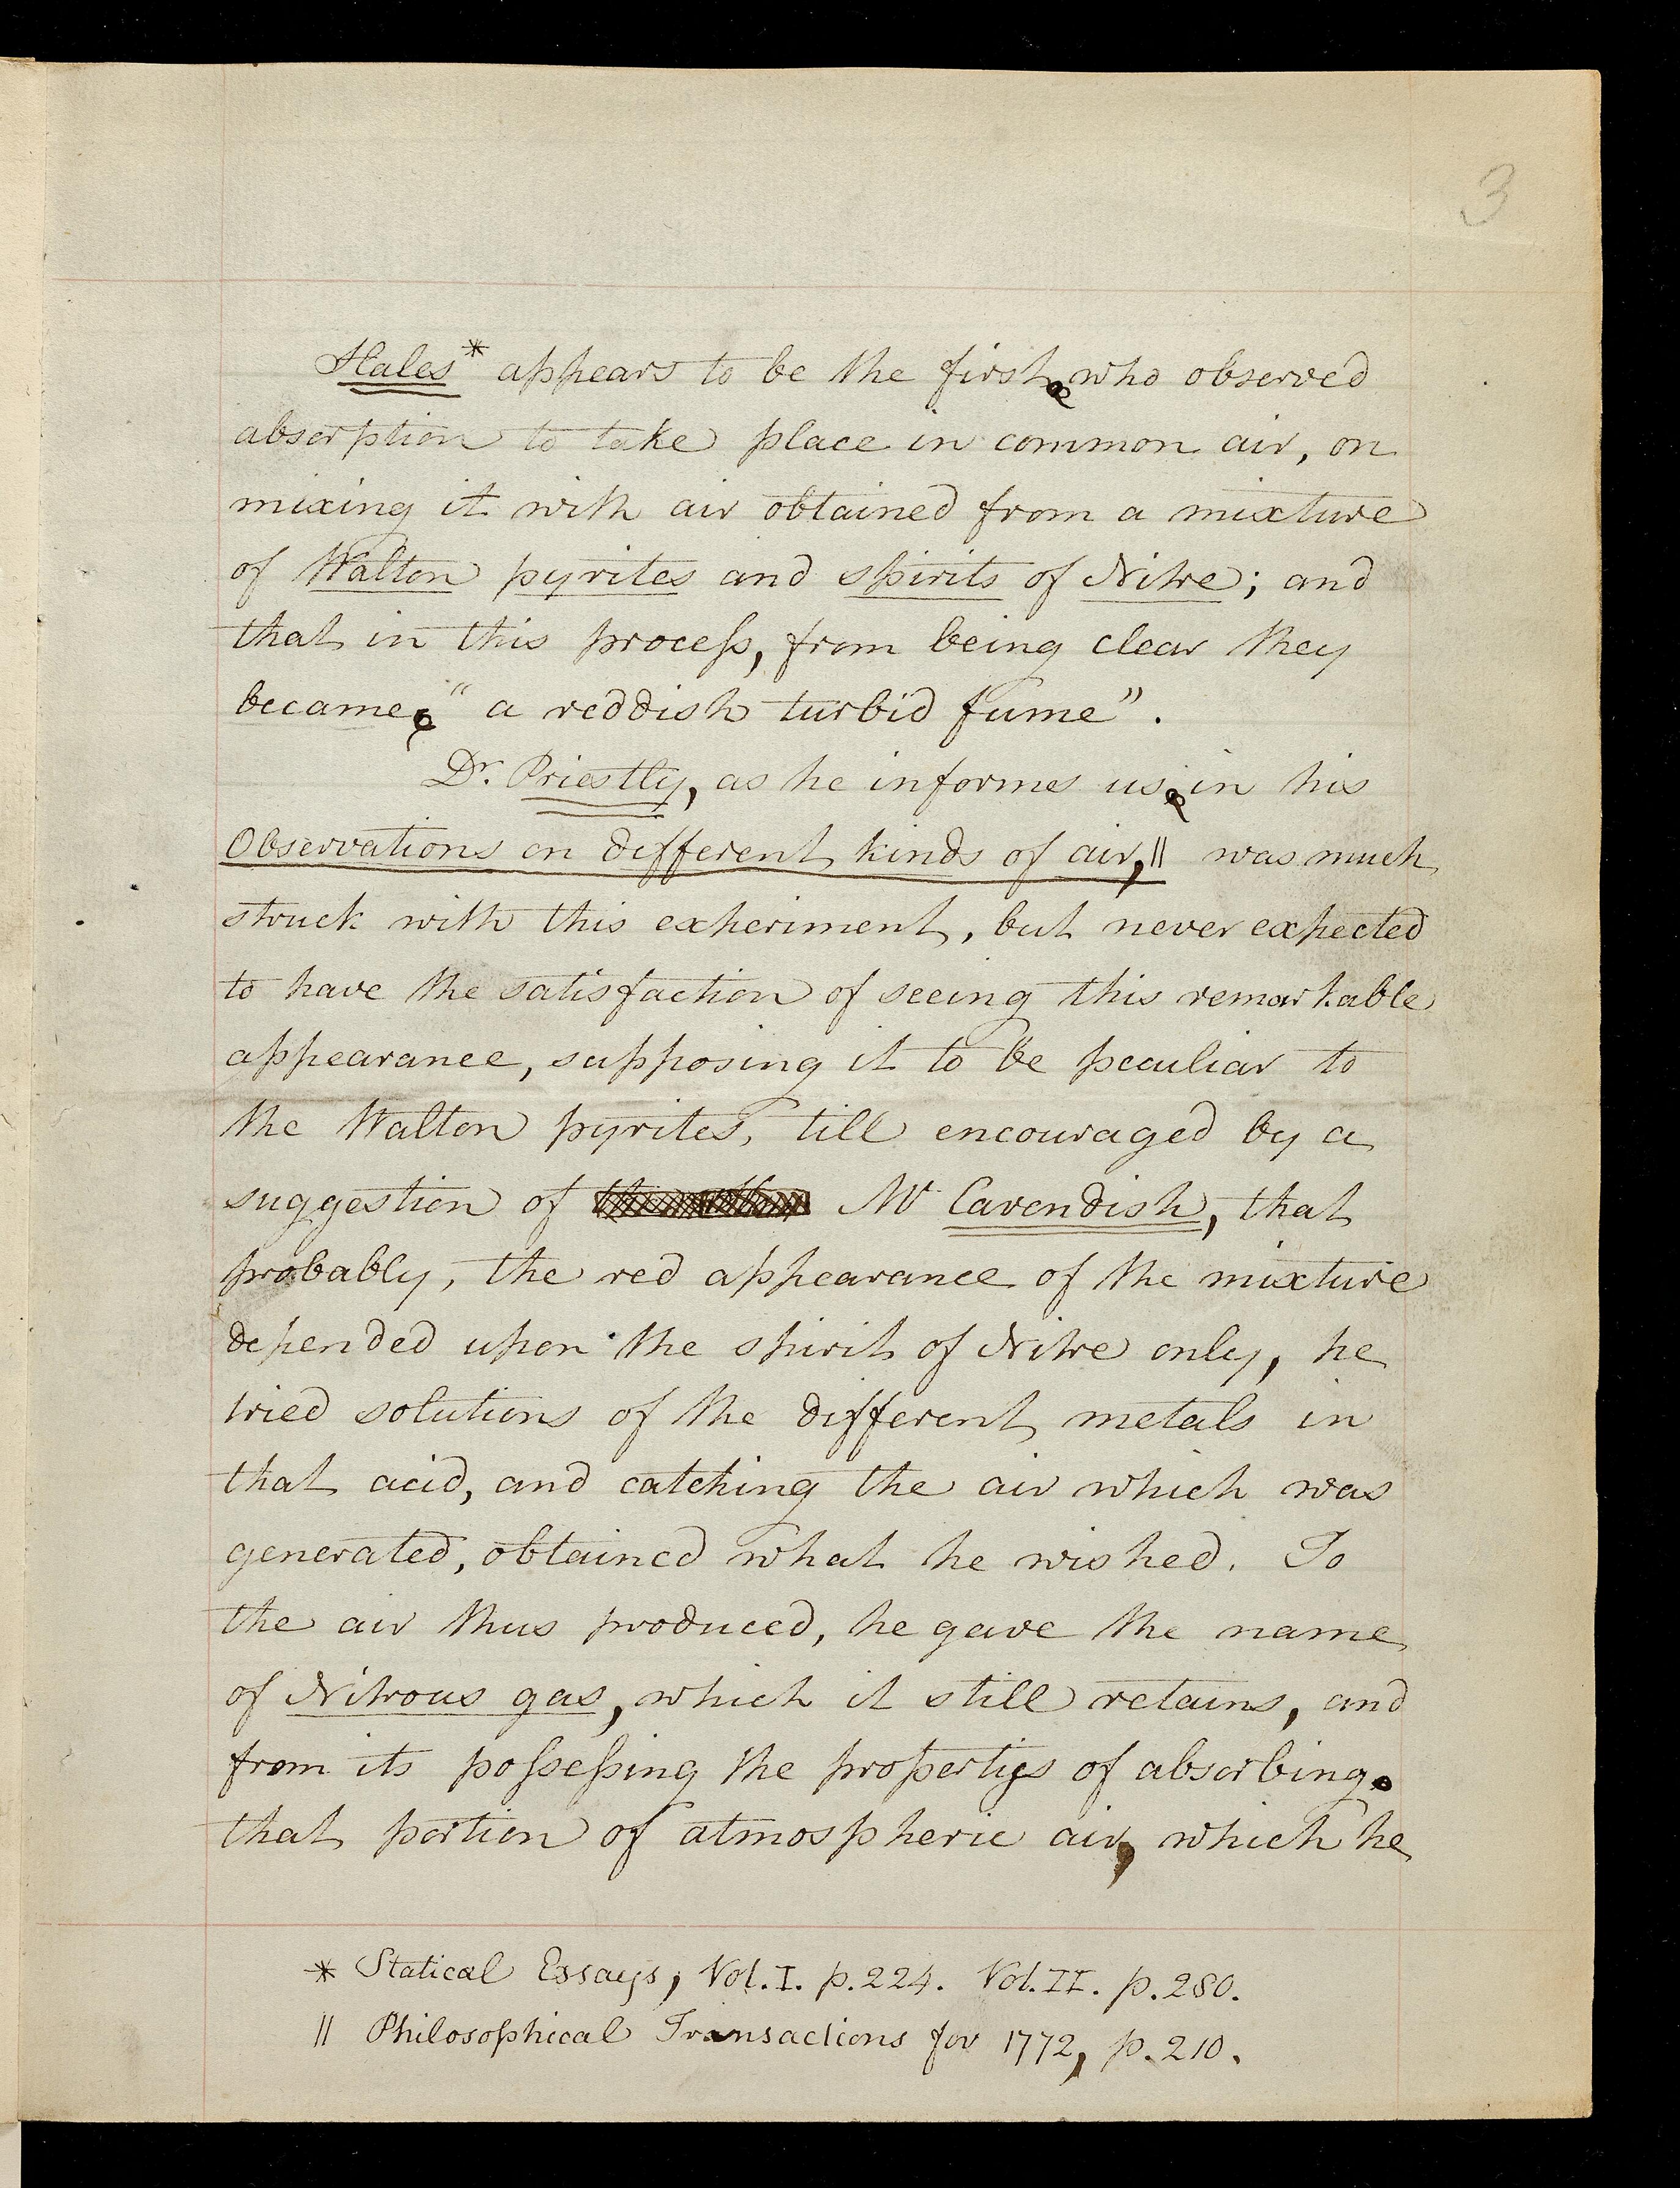 3
Hales* appears to be the first who observed
absorption to take place in common air, on
mixing it with air obtained from a mixture
of Walton pyrites and spirits of Nitre; and
that in this proceſs, from being clear they
became "a reddish turbid fume".
Dr. Priestly, as he informs us in his
Observations on different kinds of air,|| was much
struck with this experiment, but never expected
to have the satisfaction of seeing this remarkable
appearance, supposing it to be peculiar to
the Walton pyrites, till encouraged by a
suggestion of Mr Cavendish, that
probably, the red appearance of the mixture
depended upon the spirit of Nitre only, he
tried solutions of the different metals in
that acid, and catching the air which was
generated, obtained what he wished. To
the air thus produced, he gave the name
of Nitrous gas, which it still retains, and
from its poſseſsing the properties of absorbing
that portion of atmospheric air, which he
* Statical Essays, Vol. I. p. 224. Vol. II. p. 280.
|| Philosophical Transactions for 1772, p. 210.